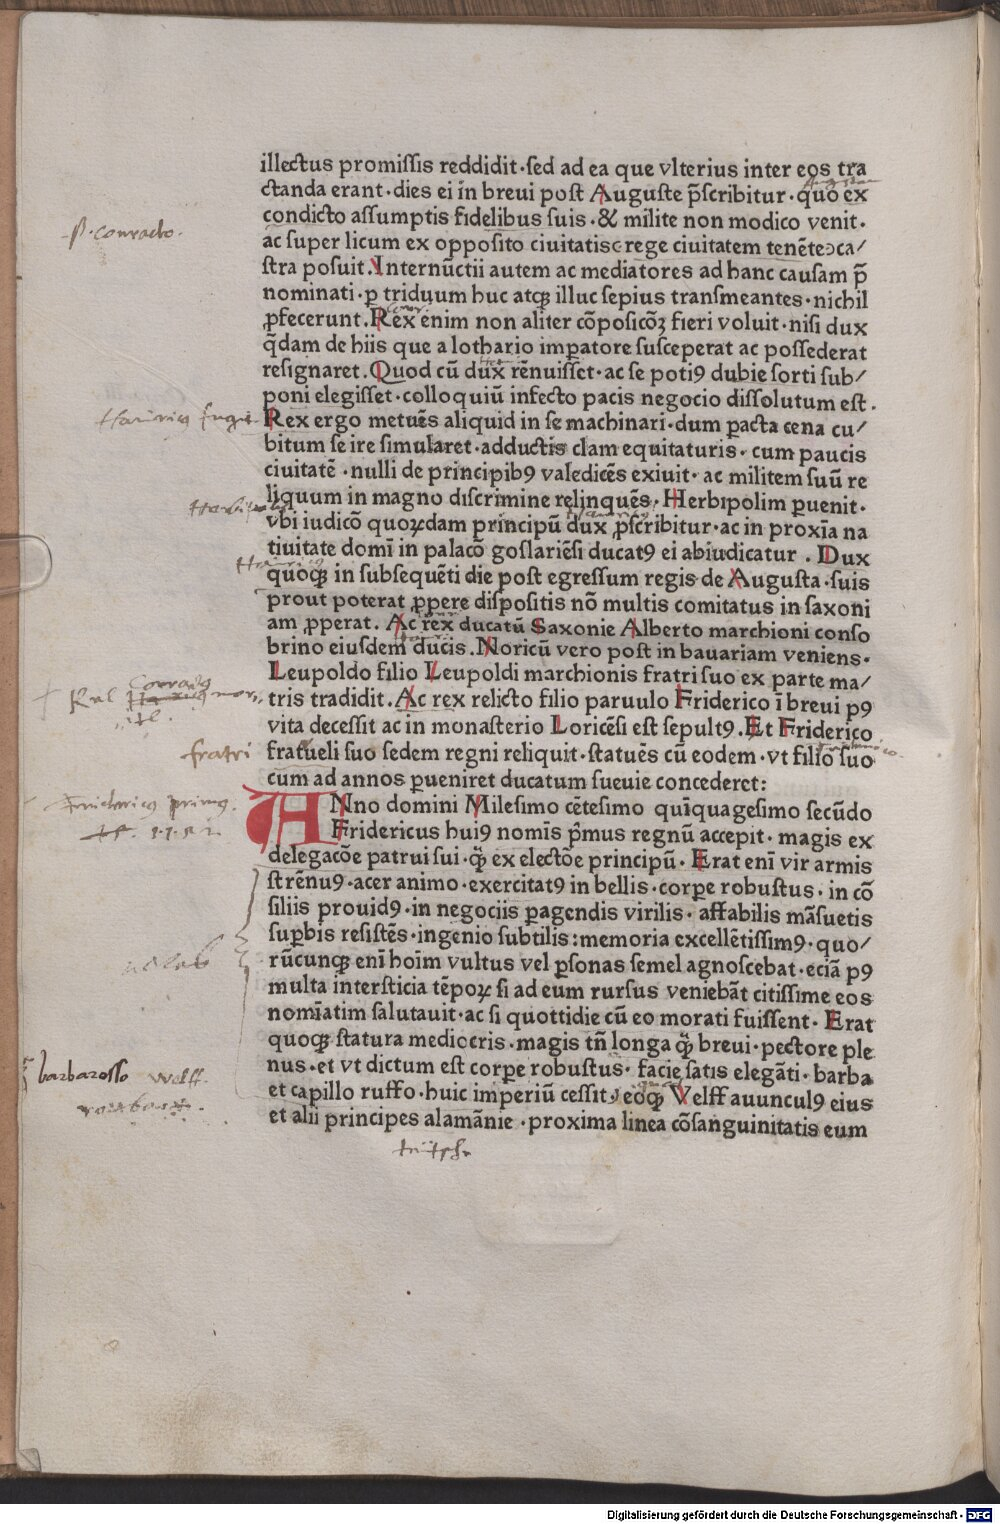 illectus promissis reddidit·sed ad ea que vlterius inter eos tra
ctanda erant·dies ei in breui post Auguste p̄scribitur·quo ex
condicto assumptis fidelibus suis·& milite non modico venit·
p. conrado.
ac super licum ex opposito ciuitatis rege ciuitatem tenēte ca/
stra posuit. Internūctii autem ac mediatores ad hanc causam p̄
nominati·ꝑ triduum huc atqꝫ illuc sepius transmeantes·nichil
ꝓfecerunt. Rex enim non aliter cōposicōꝫ fieri voluit·nisi dux
q̄dam de hiis que a lothario imꝑatore susceperat ac possederat
resignaret. Quod cū dux rēnuisset·ac se potiꝰ dubie sorti sub/
poni elegisset·colloquiū infecto pacis negocio dissolutum est.
Rex ergo metuēs aliquid in se machinari·dum ꝑacta cena cu/
bitum se ire simularet·adductis clam equitaturis·cum paucis
ciuitatē·nulli de principibꝰ valedicēs exiuit·ac militem suū re
liquum in magno discrimine relinquēs. Herbipolim ꝑuenit·
vbi iudicō quoꝝdam principū dux ꝓscribitur·ac in proxīa na
tiuitate domī in palacō goslariēsi ducatꝰ ei abiudicatur. Dux
quoqꝫ in subsequēti die post egressum regis de Augusta·suis
prout poterat ꝓpere dispositis nō multis comitatus in saxoni
am ꝓperat. Ac rex ducatū Saxonie Alberto marchioni conso
brino eiusdem ducis. Noricū vero post in bauariam veniens·
Leupoldo filio Leupoldi marchionis fratri suo ex parte ma/
tris tradidit. Ac rex relicto filio paruulo Friderico ī breui pꝰ
vita decessit ac in monasterio Loricēsi est sepultꝰ. Et Friderico
fratri
fratueli suo sedem regni reliquit·statuēs cū eodem·vt filio suo
cum ad annos ꝑueniret ducatum sueuie concederet:
Fridericus primus.
ANno domini Milesimo cētesimo quīquagesimo secūdo
Fridericus huiꝰ nomīs p̄mus regnū accepit·magis ex
delegacōe patrui sui·q̄ ex electōe principū. Erat enī vir armis
strēnuꝰ·acer animo·exercitatꝰ in bellis·corꝑe robustus·in cō
siliis prouidꝰ·in negociis ꝑagendis virilis·affabilis māsuetis
suꝑbis resistēs·ingenio subtilis:memoria excellētissimꝰ·quo/
rūcunqꝫ enī hoīm vultus vel ꝑsonas semel agnoscebat·eciā pꝰ
multa intersticia tēpoꝝ si ad eum rursus veniebāt citissime eos
nomīatim salutauit·ac si quottidie cū eo morati fuissent. Erat
quoqꝫ statura mediocris·magis tn̄ longa q̄ breui·pectore ple
nus·et vt dictum est corꝑe robustus·facie satis elegāti·barba
barbarosso Welff.
et capillo ruffo·huic imperiū cessit, eoqꝫ Velff auunculꝰ eius
et alii principes alamānie·proxima linea cōsanguinitatis eum
Digitalisierung gefördert durch die Deutsche Forschungsgemeinschaft - DFG